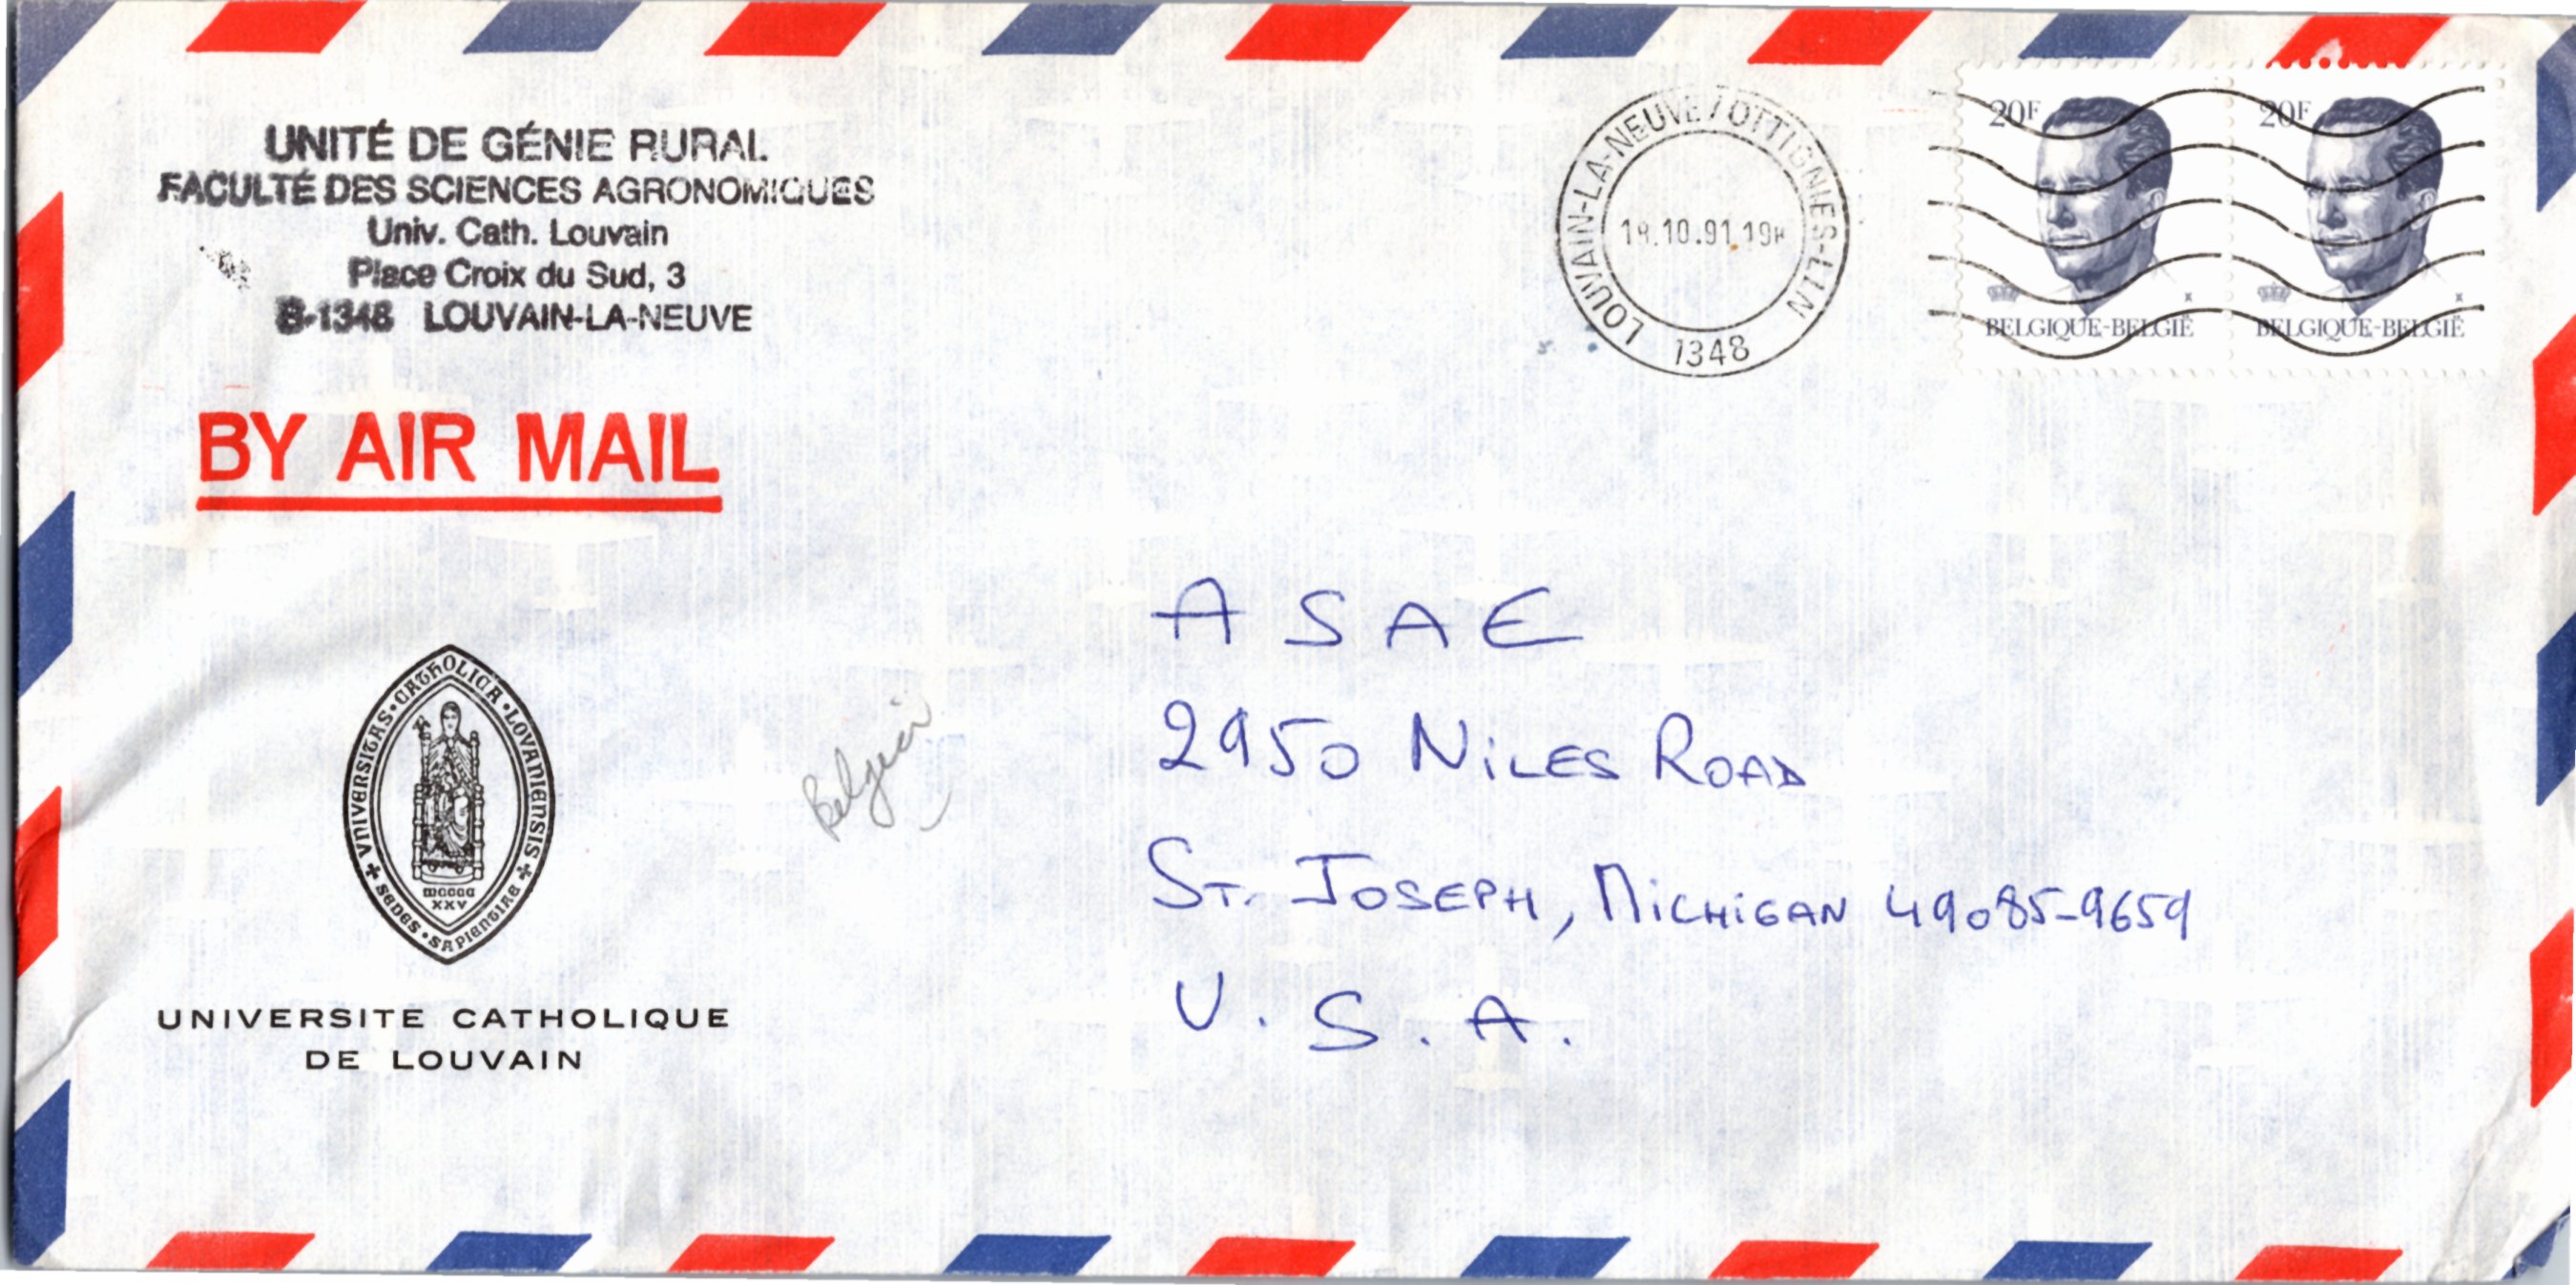 UNITÉ DE GÉNIE RURAL
FACULTÉ DES SCIENCES AGRONOMIQUES
Univ. Cath. Louvain
Place Croix du Sud, 3
B-1348 LOUVAIN-LA-NEUVE
BY AIR MAIL
LOUVAIN-LA-NEUVE / OTTIGNIES-LLN
.10.91.19H
1348
20F
BELGIQUE-BELGIË
20F
BELGIQUE-BELGIË
A S A E
2950 NiLES ROAD
ST. JOSEPH, MiCHiGAN 49085-9659
U. S. A.
VNIVERSITAS • CATHOLICA • LOVANIENSIS
SEDES • SAPIENTIAE
MCCCC
XXV
UNIVERSITE CATHOLIQUE
DE LOUVAIN